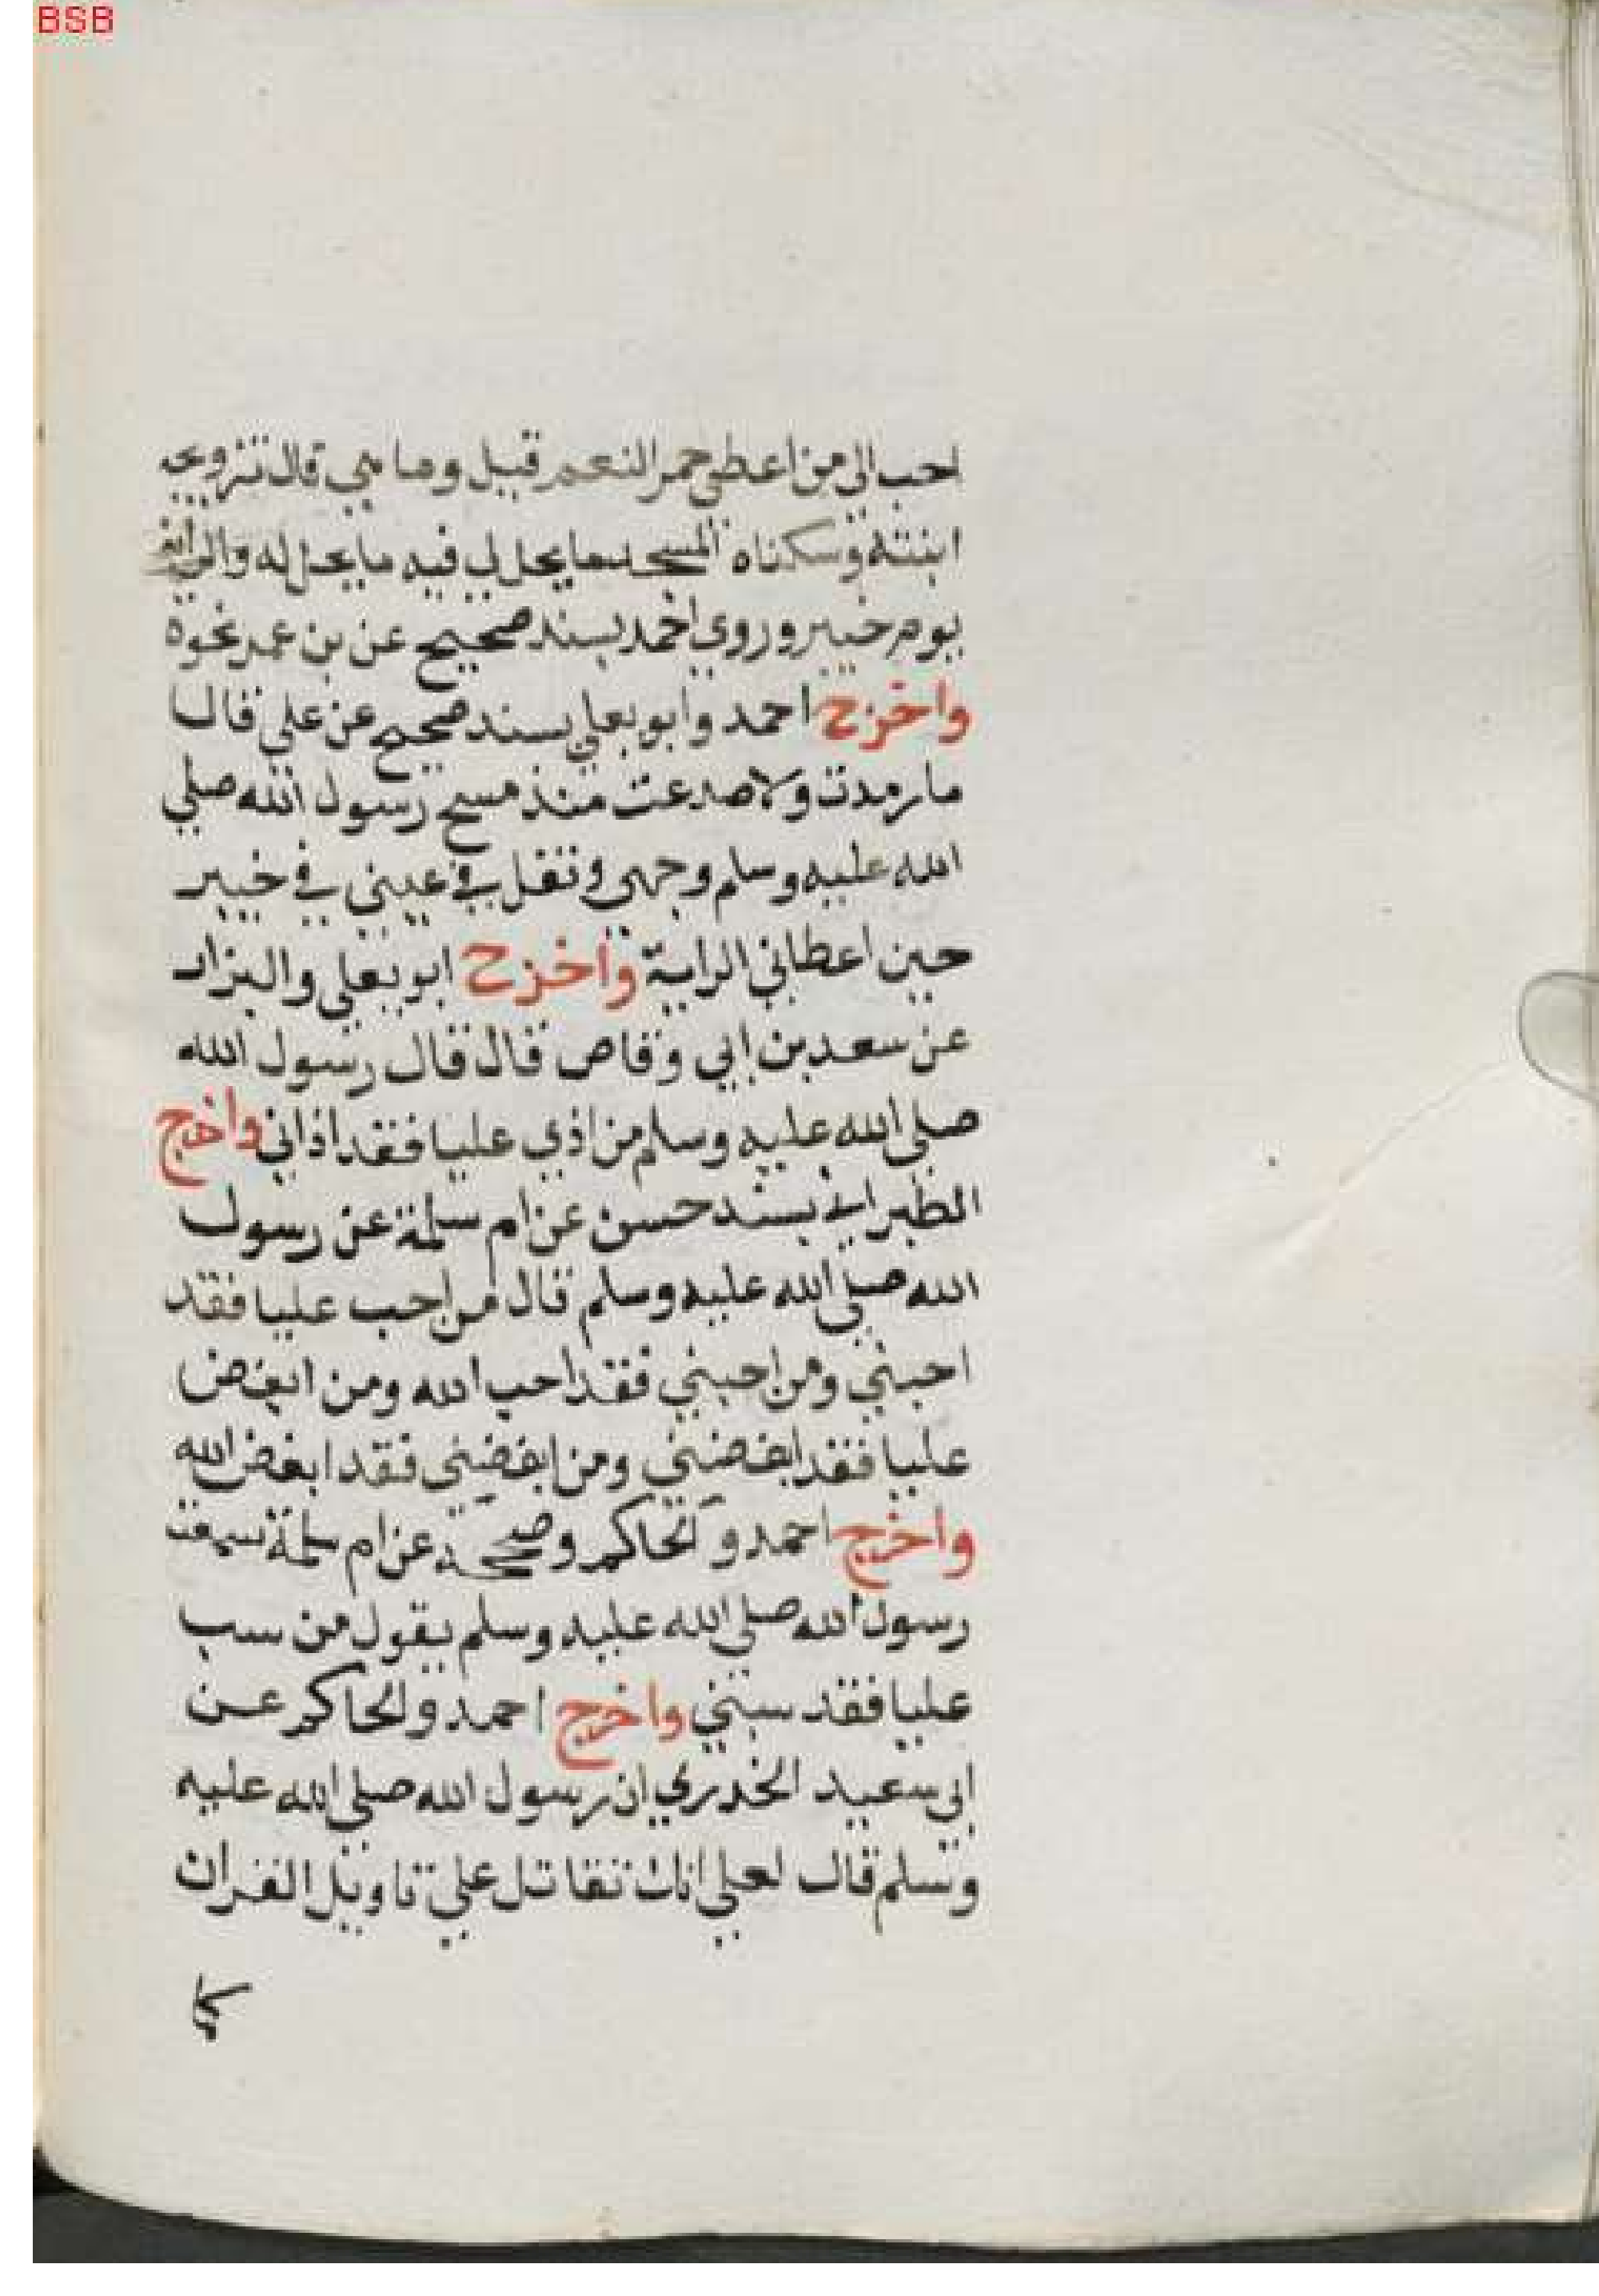 BSB
احب الي من اعطي حمر النعم قيل وما هي قال تزوجه
ابنته وسكناه المسجد ما يحل لي فيه ما يحل له والراية
يوم خيبر وروي احمد بسند صحيح عن بن عمر نحوه
واخرج احمد وابو يعلي بسند صحيح عن علي قال
ما رمدت ولا صدعت منذ مسح رسول الله صلي
الله عليه وسلم وجهي وتفل في عيني في خيبر
حين اعطاني الراية واخرج ابو يعلي والبزار
عن سعد بن ابي وقاص قال قال رسول الله
صلي الله عليه وسلم من اذي عليا فقد اذاني واخرج
الطبراني بسند حسن عن ام سلمة عن رسول
الله صلي الله عليه وسلم قال من احب عليا فقد
احبني ومن احبني فقد احب الله ومن ابغض
عليا فقد ابغضني ومن ابغضني فقد ابغض الله
واخرج احمد والحاكم وصححه عن ام سلمة سمعت
رسول الله صلي الله عليه وسلم يقول من سب
عليا فقد سبني واخرج احمد والحاكم عن
ابي سعيد الخدري ان رسول الله صلي الله عليه
وسلم قال لعلي انك تقاتل علي تاويل القران
كما